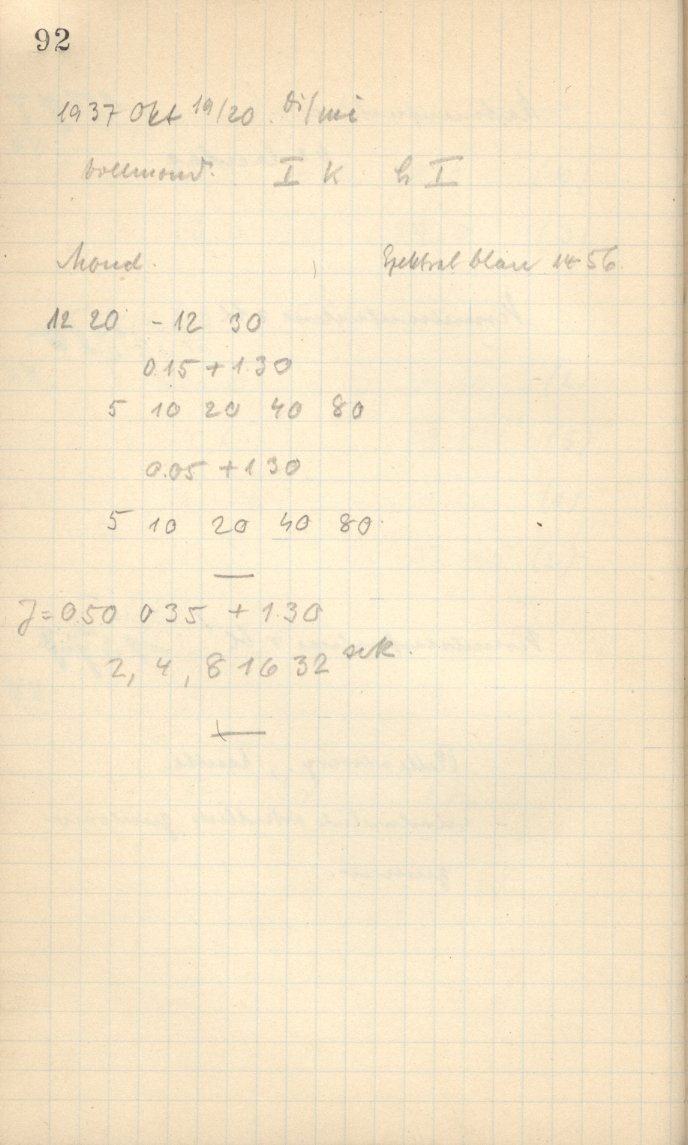 92
1937 Okt 19/20. Di/Mi
Vollmond. I K h I
Mond. Spektral blau 14 56
12 20 - 12 30
0.15 + 1.30
5 10 20 40 80
0.05 + 1 30
5 10 20 40 80
J = 0.50 0 35 + 1.30
2, 4, 8 16 32 sek.